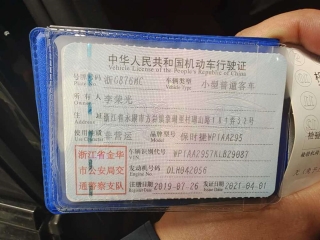 中华人民共和国机动车行驶证
Vehicle License of the People's Republic of China
号牌号码 浙G876MC 车辆类型 Vehicle Type 小型普通客车
所有人 李荣光
住址
使用性质 非营运 品牌型号 保时捷WP1AA295
浙江省金华市公安局交通警察支队
车辆识别代号 VIN WP1AA2957KLB29087
发动机号码 Engine No. DLH042056
注册日期 2019-07-26 发证日期 2021-04-01